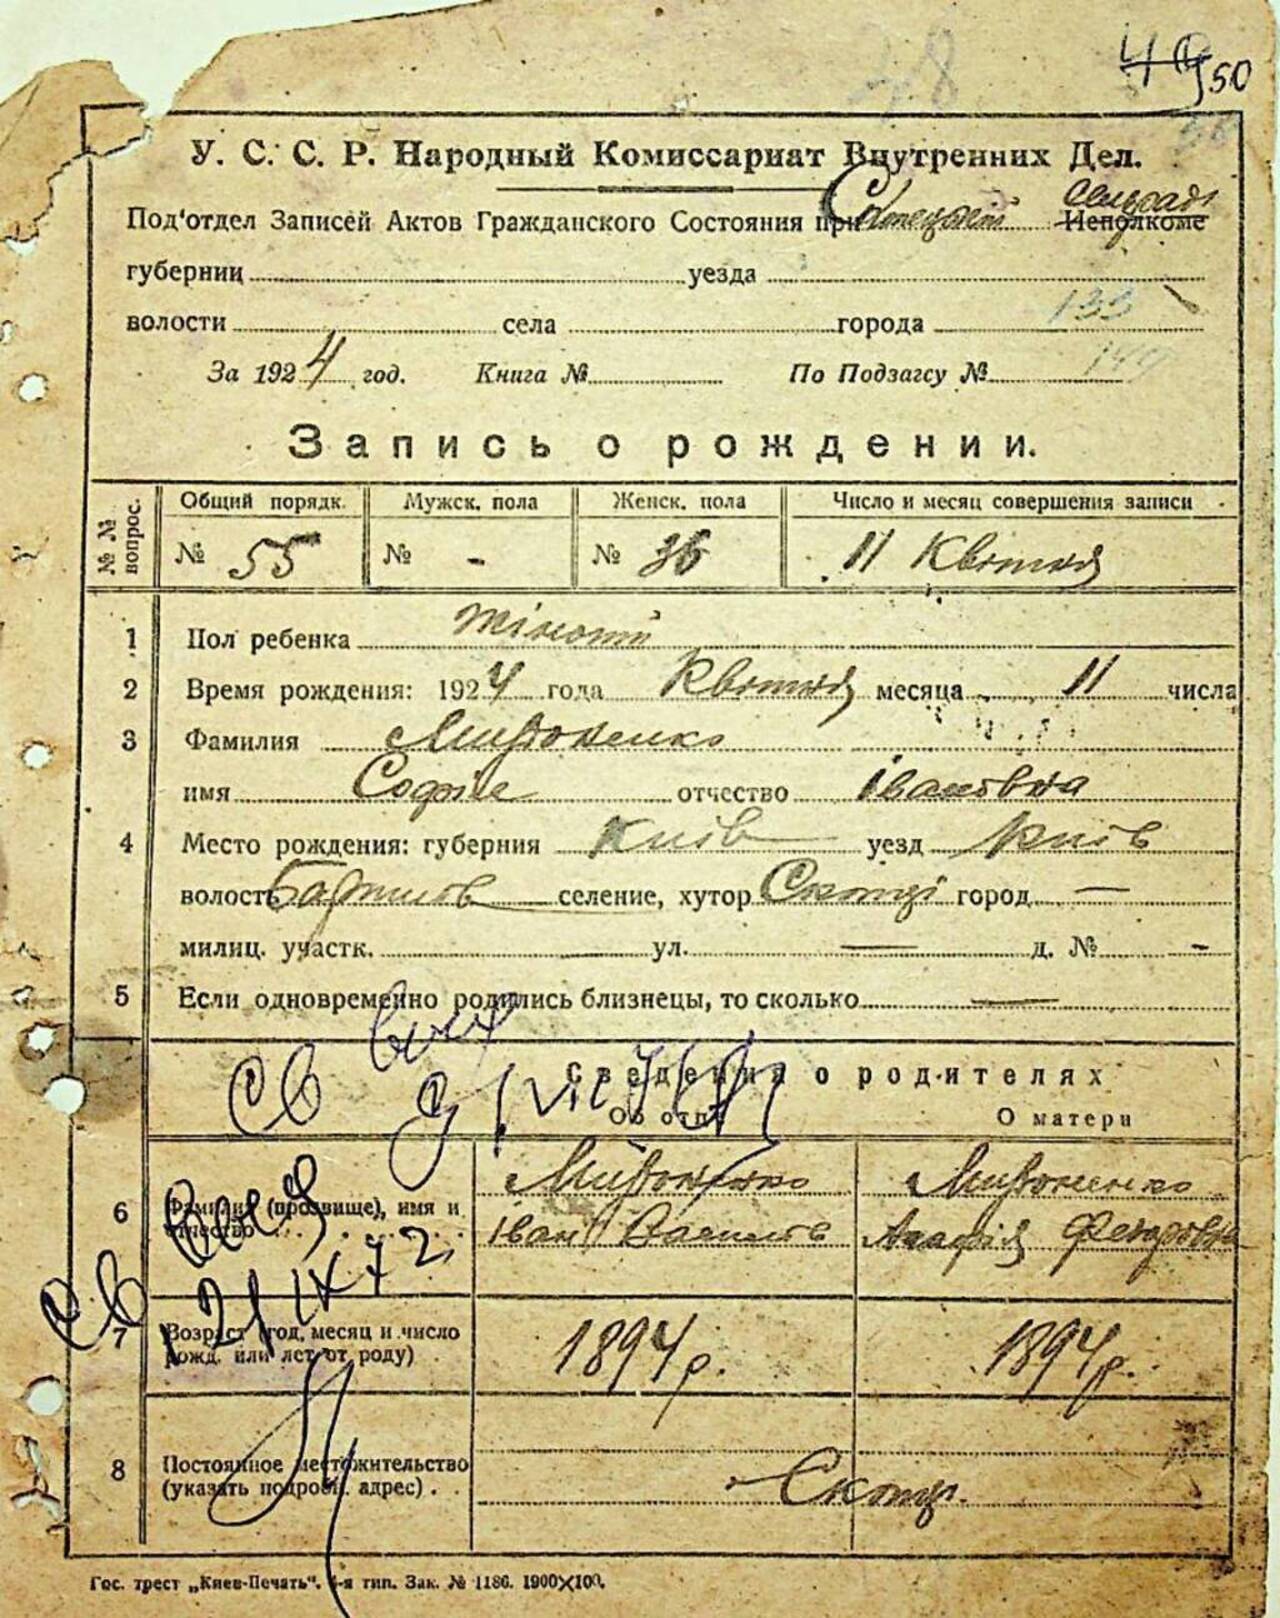 50
У. С. С. Р. Народный Комиссариат Внутренних Дел.
Под'отдел Записей Актов Гражданского Состояния при Исполкоме
губернии уезда
волости села города 133
За 1924 год. Книга № По Подзагсу №
Запись о рождении.
№ № вопрос. Общий порядк. Мужск. пола Женск. пола Число и месяц совершения записи
№ 55 № - № 36 11 Квітня
1 Пол ребенка
2 Время рождения: 1924 года Квітня месяца 11 числа
3 Фамилия Мироненко
имя Софіє отчество Івановна
4 Место рождения: губерния Київ уезд Київ
волость селение, хутор город —
милиц. участк. ул. — д. № -
5 Если одновременно родились близнецы, то сколько —
Сведения о родителях
Об отце О матери
6 Фамилия (прозвище), имя и отчество Мироненко Мироненко
Іван Васильов Федоровна
7 Возраст (год, месяц и число рожд. или лет от роду) 1894 р. 1894 р.
8 Постоянное местожительство (указать подробн. адрес)
Гос. трест „Киев-Печать“. тип. Зак. № 1186. 1900×100.